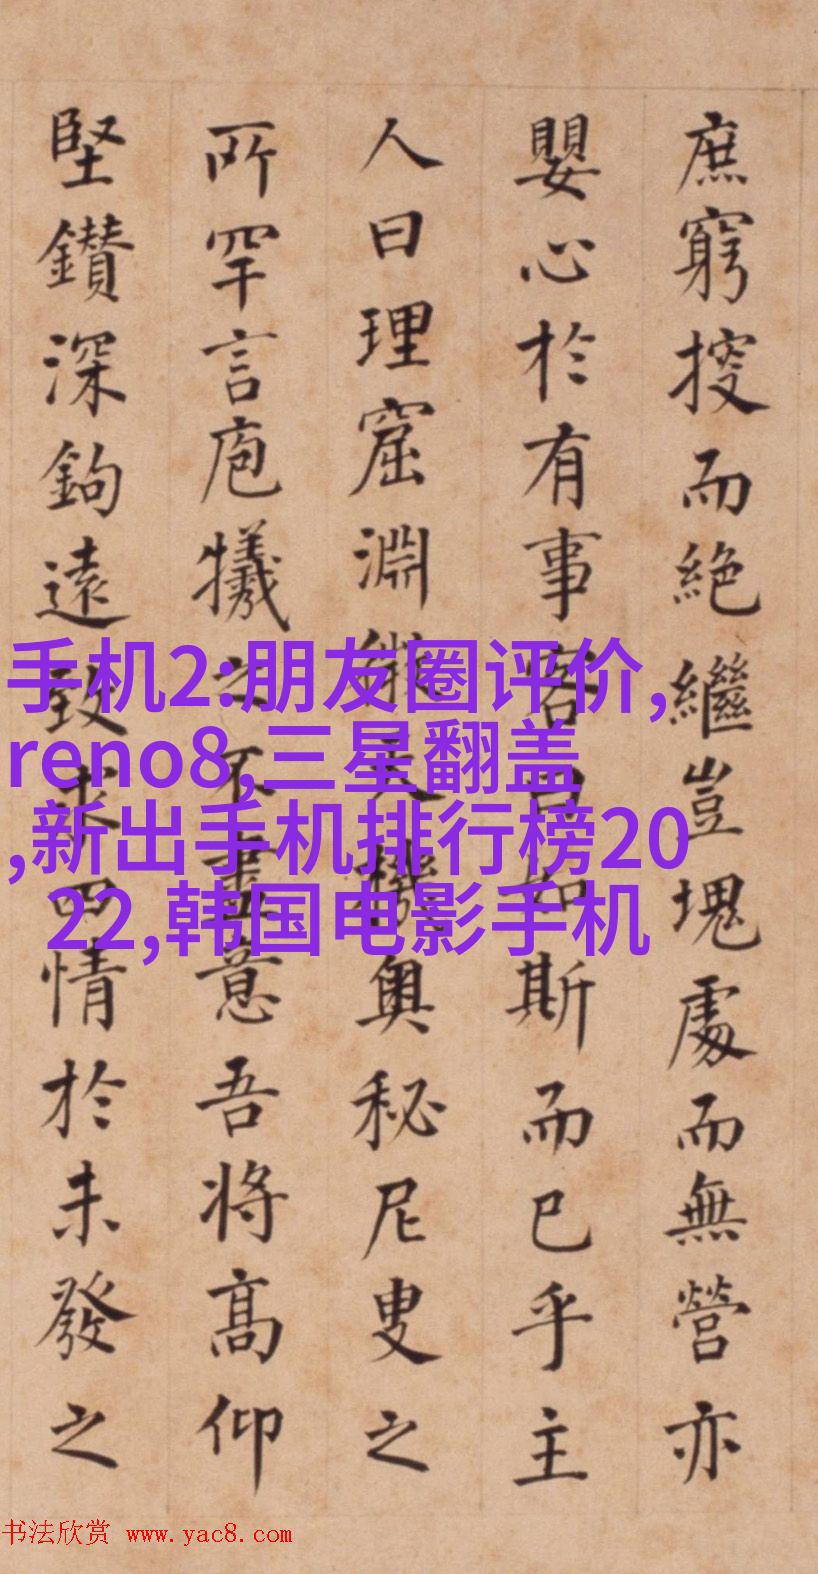 庶窮搜而絶繼豈塊處而無營亦
嬰心於有事客曰如斯而已乎主
人曰理窟淵微天機奥秘尼叟之
所罕言庖犧之不盡意吾将髙仰
堅鑽深鉤遠致求四情於未發之
手机2:朋友圈评价,
reno8,三星翻盖
,新出手机排行榜20
22,韩国电影手机
书法欣赏 www.yac8.com